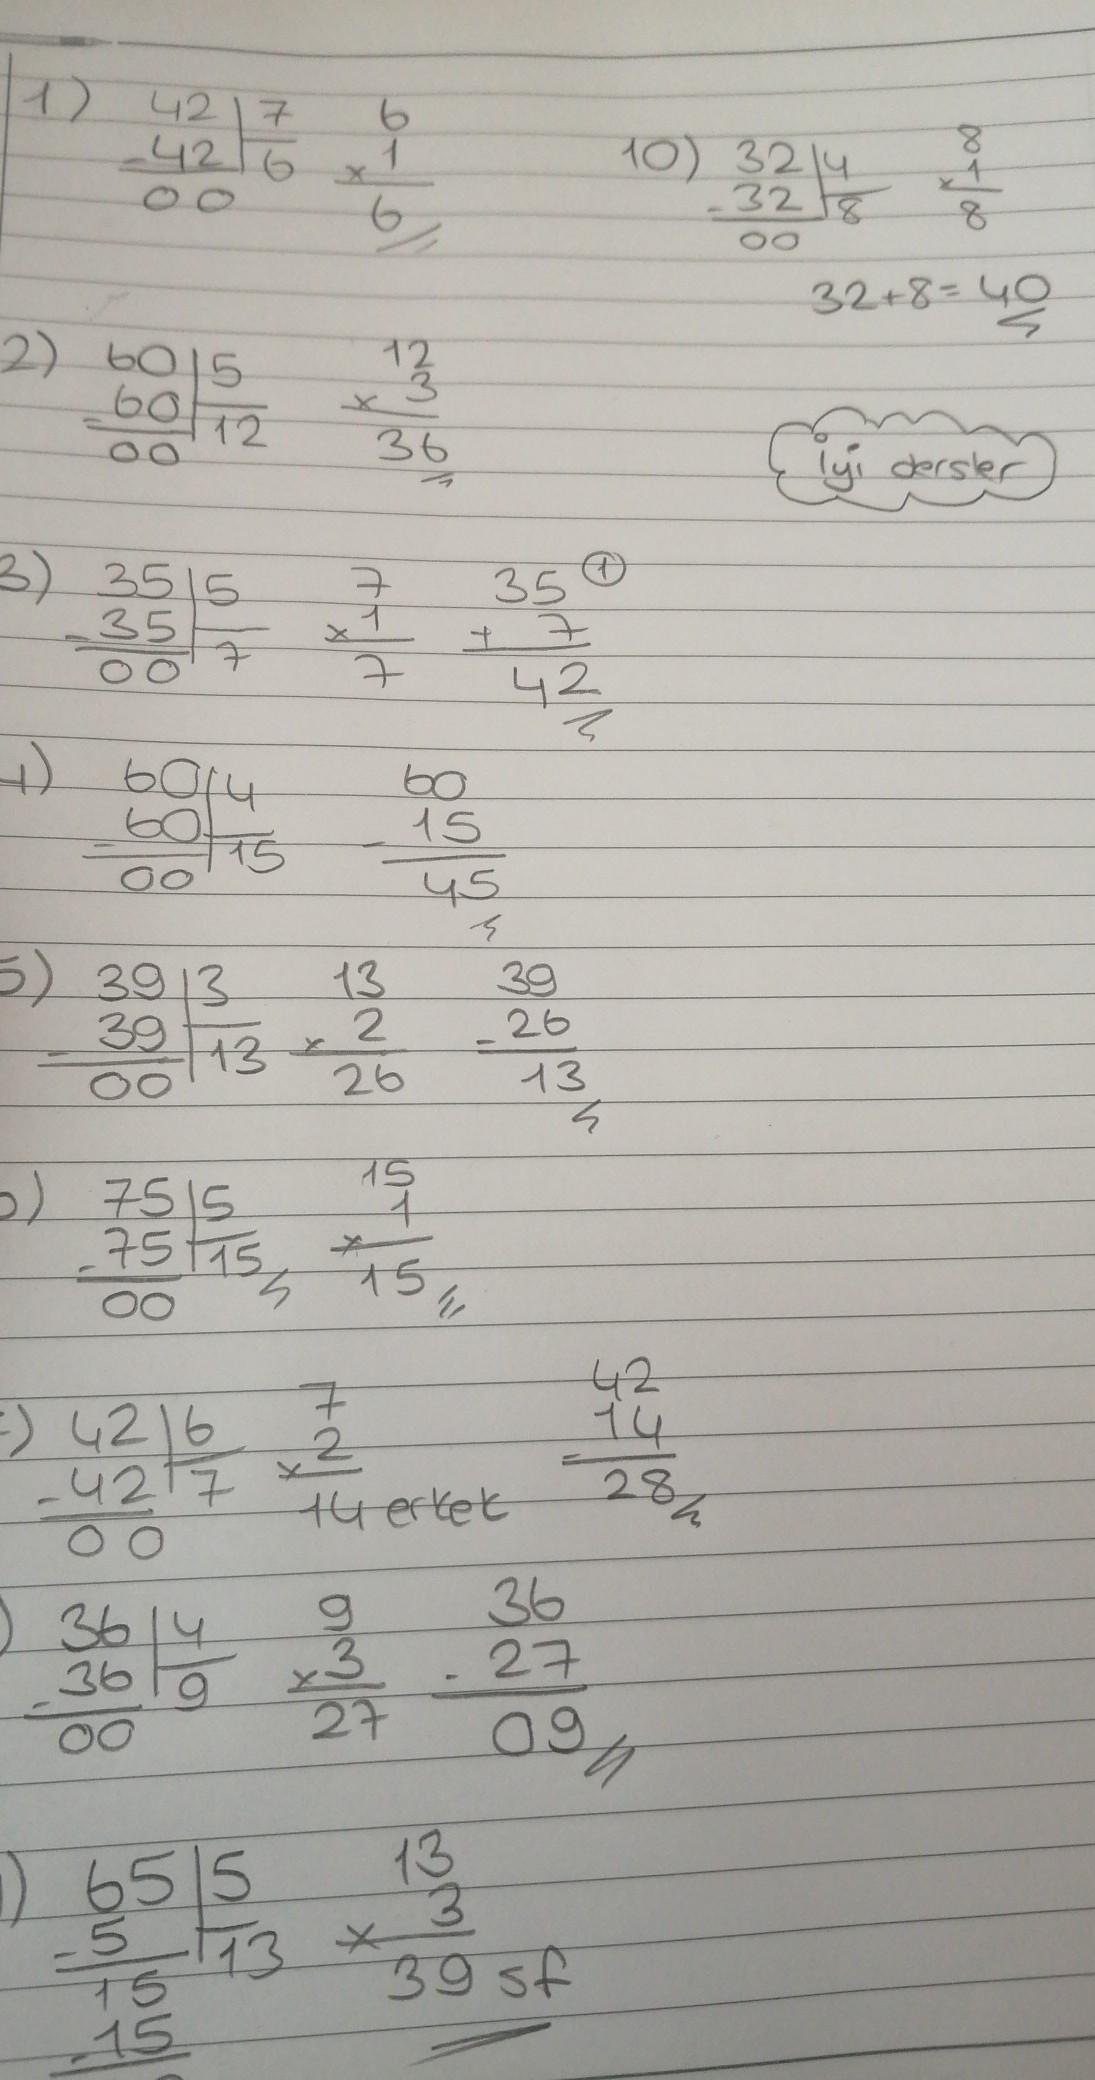 1) 42 7 6
-42 6 x 1
00 6
10) 32 4 8
-32 8 x 1
00 8
32+8=40
2) 60 5 12
-60 12 x 3
00 36
iyi dersler
3) 35 5 7 35 1
-35 7 x 1 + 7
00 7 42
4) 60 4 60
-60 15 - 15
00 45
5) 39 3 13 39
-39 13 x 2 - 26
00 26 13
6) 75 5 15
-75 15 x 1
00 15
) 42 6 7 42
-42 7 x 2 - 14
00 14 erkek 28
) 36 4 9 36
-36 9 x 3 - 27
00 27 09
) 65 5 13
-5 13 x 3
15 39 sf
-15